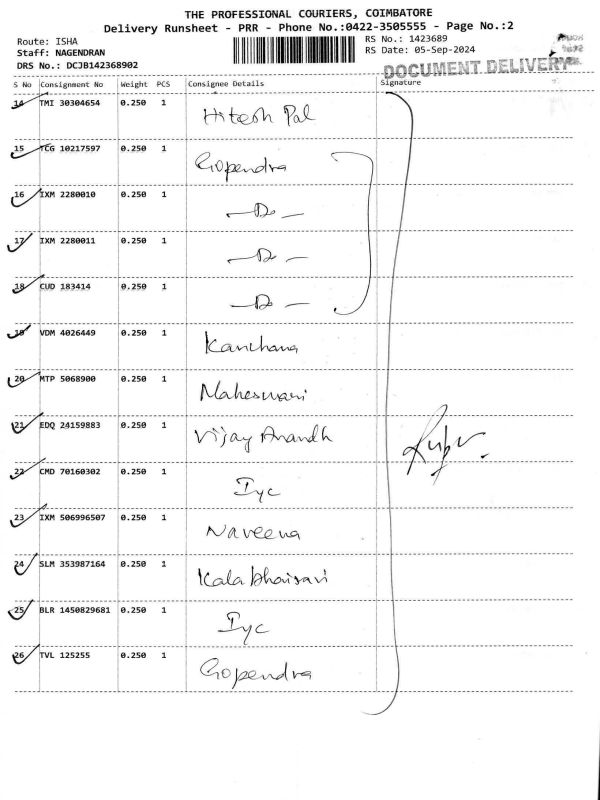 THE PROFESSIONAL COURIERS, COIMBATORE
Delivery Runsheet - PRR - Phone No.:0422-3505555 - Page No.:2
Route: ISHA RS No.: 1423689
Staff: NAGENDRAN RS Date: 05-Sep-2024
DRS No.: DCJB142368902
DOCUMENT DELIVERY
S No Consignment No Weight PCS Consignee Details Signature
14 TMI 30304654 0.250 1 Hitesh Pal
15 TCG 10217597 0.250 1 Gopendra
16 IXM 2280010 0.250 1 —Do—
17 IXM 2280011 0.250 1 —Do—
18 CUD 183414 0.250 1 —Do—
19 VDM 4026449 0.250 1 Kanchana
20 MTP 5068900 0.250 1 Maheswari
21 EDQ 24159883 0.250 1 Vijay Anandh
22 CMD 70160302 0.250 1 Iyc
23 IXM 506996507 0.250 1 Naveena
24 SLM 353987164 0.250 1 Kalabhairavi
25 BLR 1450829681 0.250 1 Iyc
26 TVL 125255 0.250 1 Gopendra